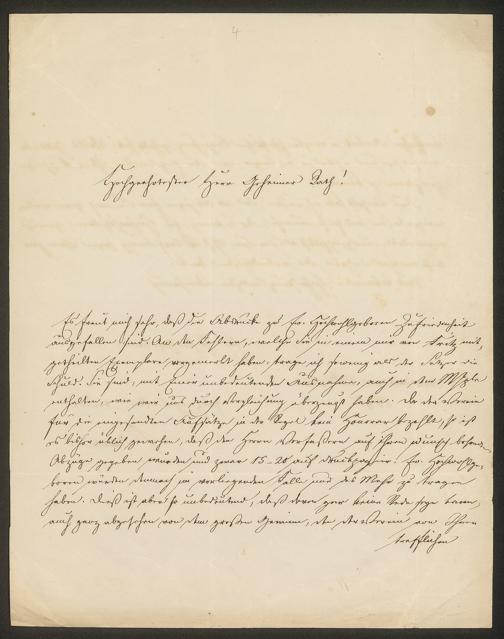 4
Hochgeehrtester Herr Geheimer Rath!
Es freut mich sehr, daß die Abdrücke zu Ew. Hochwohlgeboren Zufriedenheit
ausgefallen sind. An den Fehlern, welche Sie in einem mir von Fritz mit-
getheilten Exemplare vorgemerkt haben, trage ich so wenig als der Setzer die
Schuld. Sie sind, mit einer unbedeutenden Ausnahme, auch in dem Mspte
enthalten, wie wir uns durch Vergleichung überzeugt haben. Da der Verein
für die eingesandten Aufsätze in der Regel kein Honorar bezahlt, so ist
es bisher üblich gewesen, daß den Herrn Verfassern auf ihren Wunsch besondere
Abzüge gegeben wurden und zwar 15-20 auf Druckpapier. Ew. Hochwohlge-
boren würden demnach im vorliegenden Falle nur das Mehr zu tragen
haben. Dieß ist aber so unbedeutend, daß davon gar keine Rede seyn kann,
auch ganz abgesehen von dem großen Gewinn, den der Verein von Ihren
trefflichen